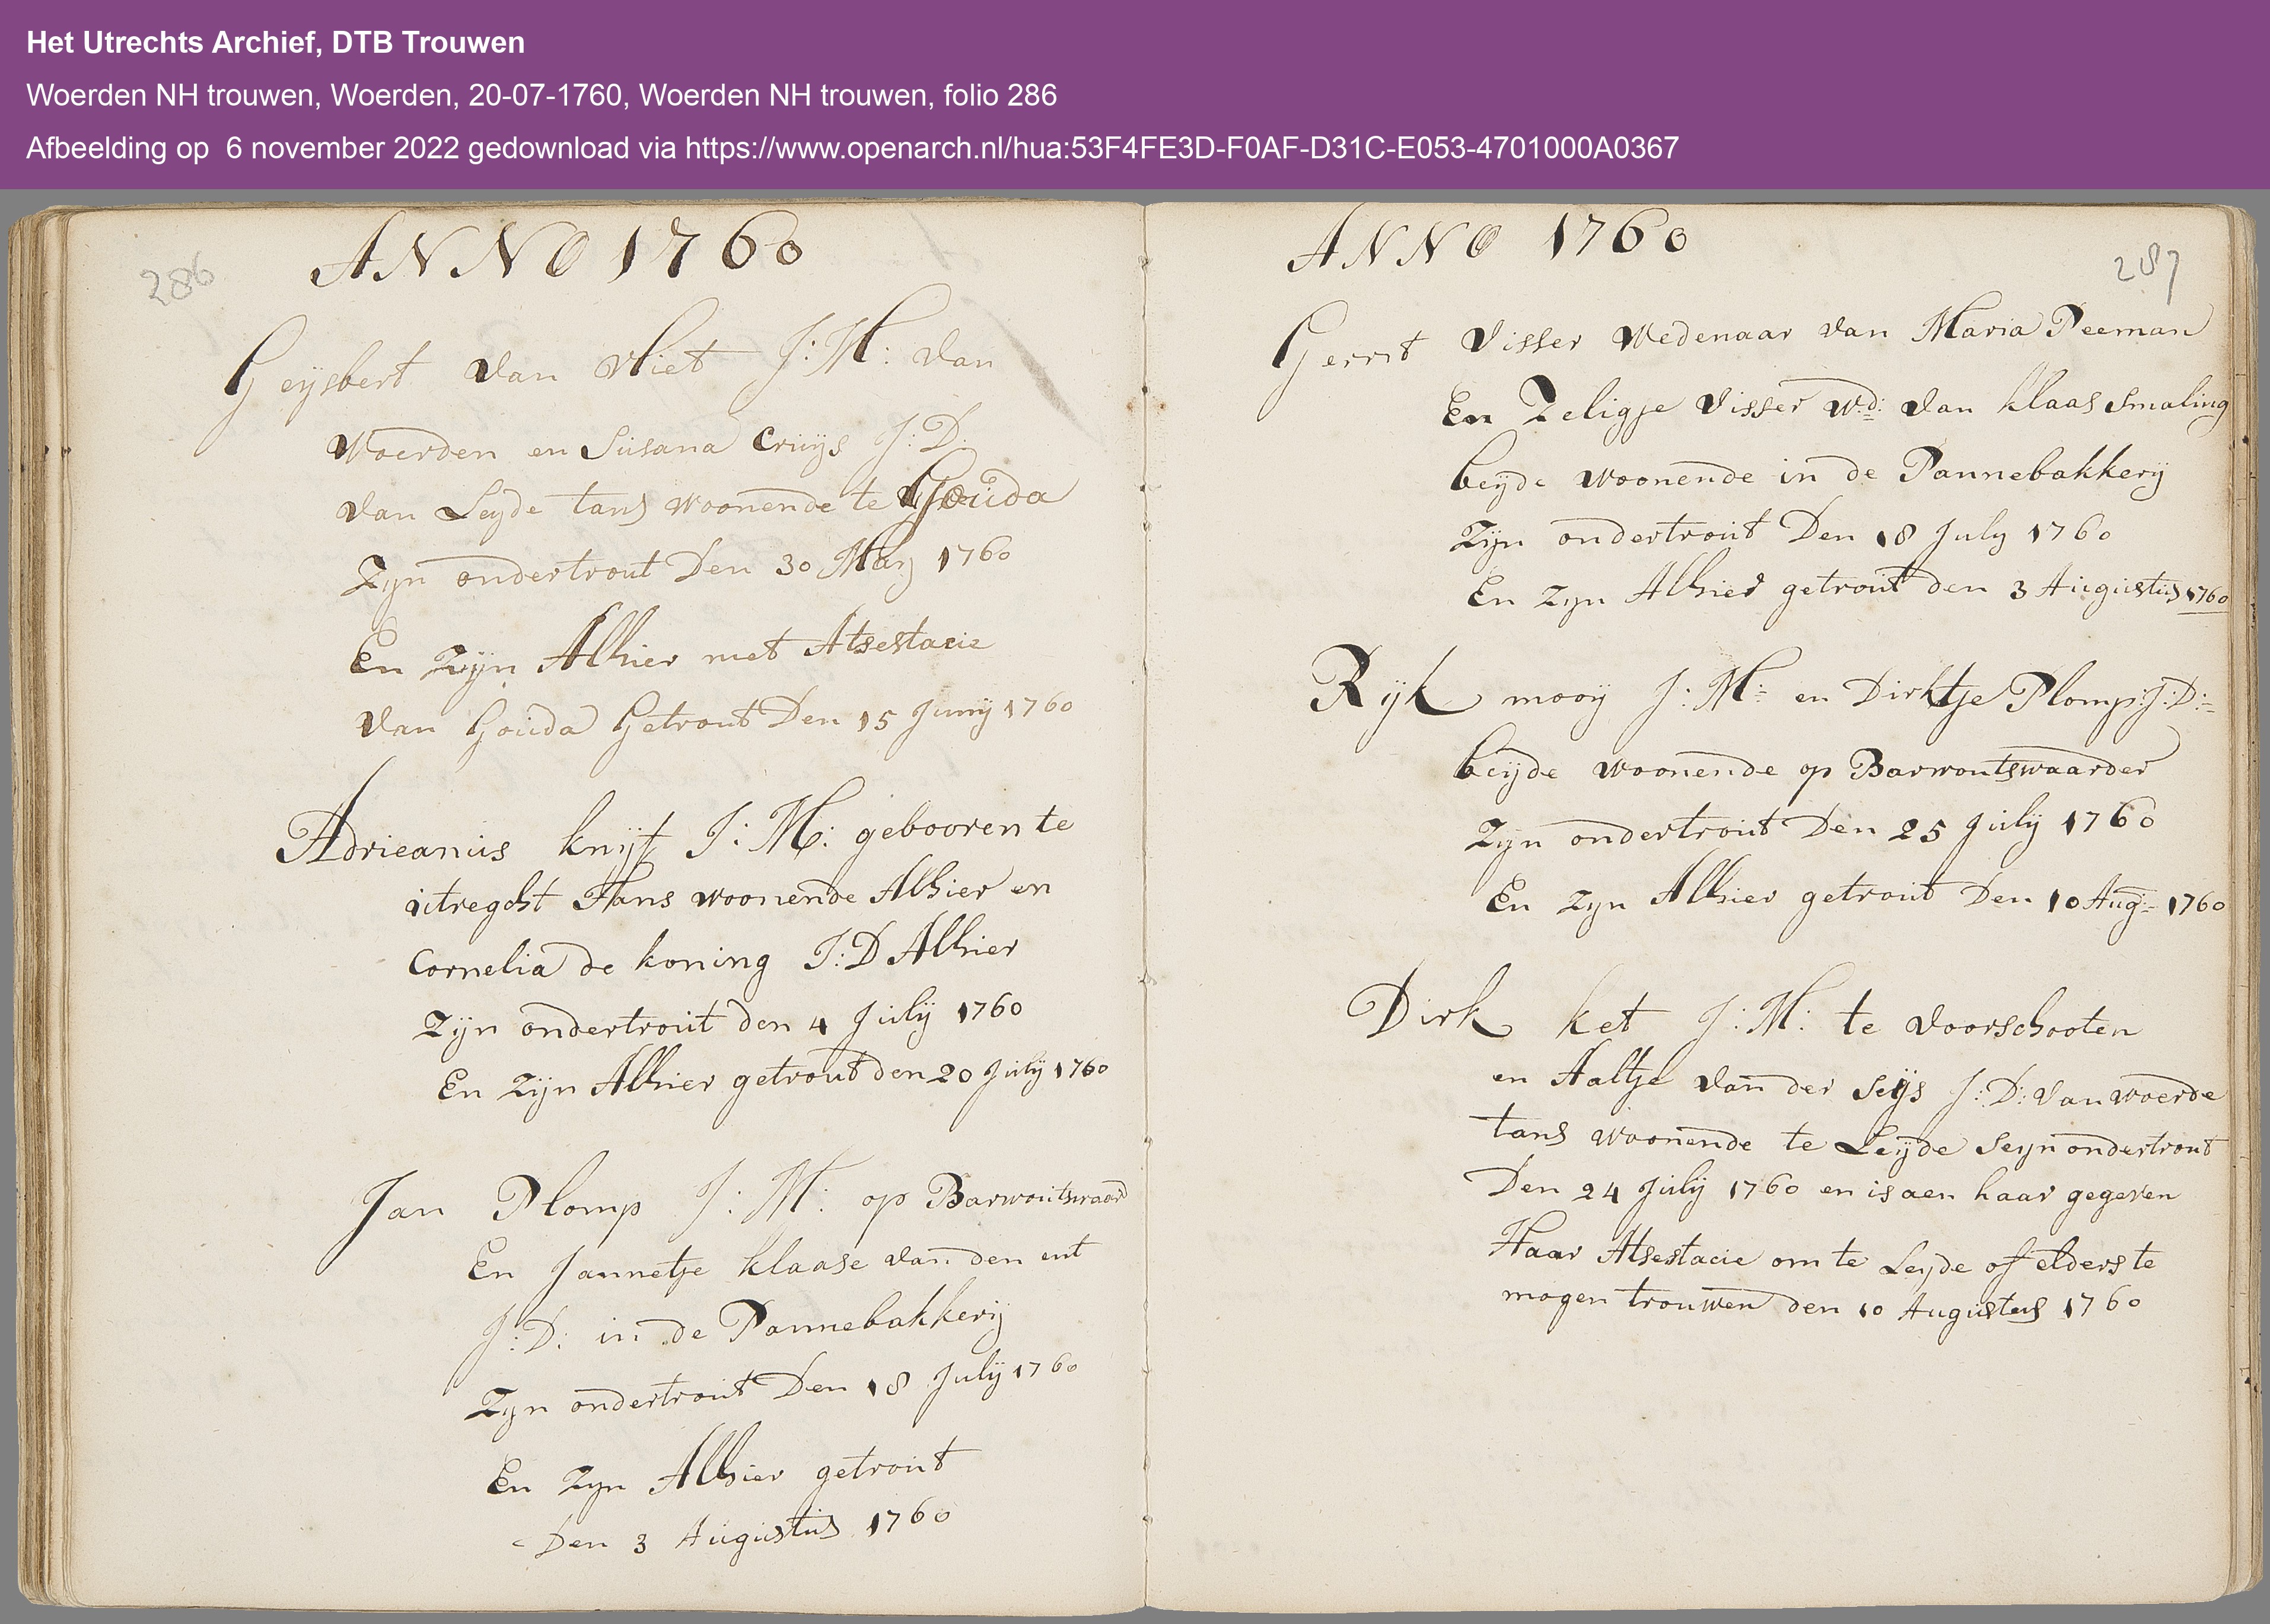 Het Utrechts Archief, DTB Trouwen
Woerden NH trouwen, Woerden, 20-07-1760, Woerden NH trouwen, folio 286
Afbeelding op 6 november 2022 gedownload via https://www.openarch.nl/hua:53F4FE3D-F0AF-D31C-E053-4701000A0367
286
ANNO 1760
Geijsbert van vliet J: M: van
Woerden en Susana Cruijs J: D:
van Leyde tans woonende te Gouda
Zijn ondertrout Den 30 Maij 1760
En Zijn Alhier met Atsestacie
van Gouda Getrout Den 15 Junij 1760
Adrieanus knijf J: M: gebooren te
uitregcht Tans woonende Alhier en
Cornelia de koning J: D Alhier
Zijn ondertrout den 4 Julij 1760
En Zijn Alhier getrout den 20 Julij 1760
Jan Plomp J: M: op Barwoutswaard
En Jannetje klaase van den ent
J: D: in de Pannebakkerij
Zijn ondertrout Den 18 July 1760
En Zyn Alhier getrout
Den 3 Augustus 1760
ANNO 1760
287
Gerrit Visser Wedenaar van Maria Peeman
En Zeligje Visser Wd: van klaas Smaling
beijde woonende in de Pannebakkerij
Zijn ondertrout Den 18 July 1760
En Zyn Alhier getrout den 3 Augustus 1760
Rijk mooij J: M: en Dirktje Plomp: J: D:
beijde woonende op Barwoutswaarder
Zijn ondertrout Den 25 Julij 1760
En Zyn Alhier getrout Den 10 Aug: 1760
Dirk ket J: M: te voorschooten
en Aaltje van der seijs J: D: van woerde
tans woonende te Leijde seyn ondertrout
Den 24 Julij 1760 en is aen haar gegeven
Haar Atsestacie om te Leyde of elders te
mogen trouwen den 10 Augustus 1760